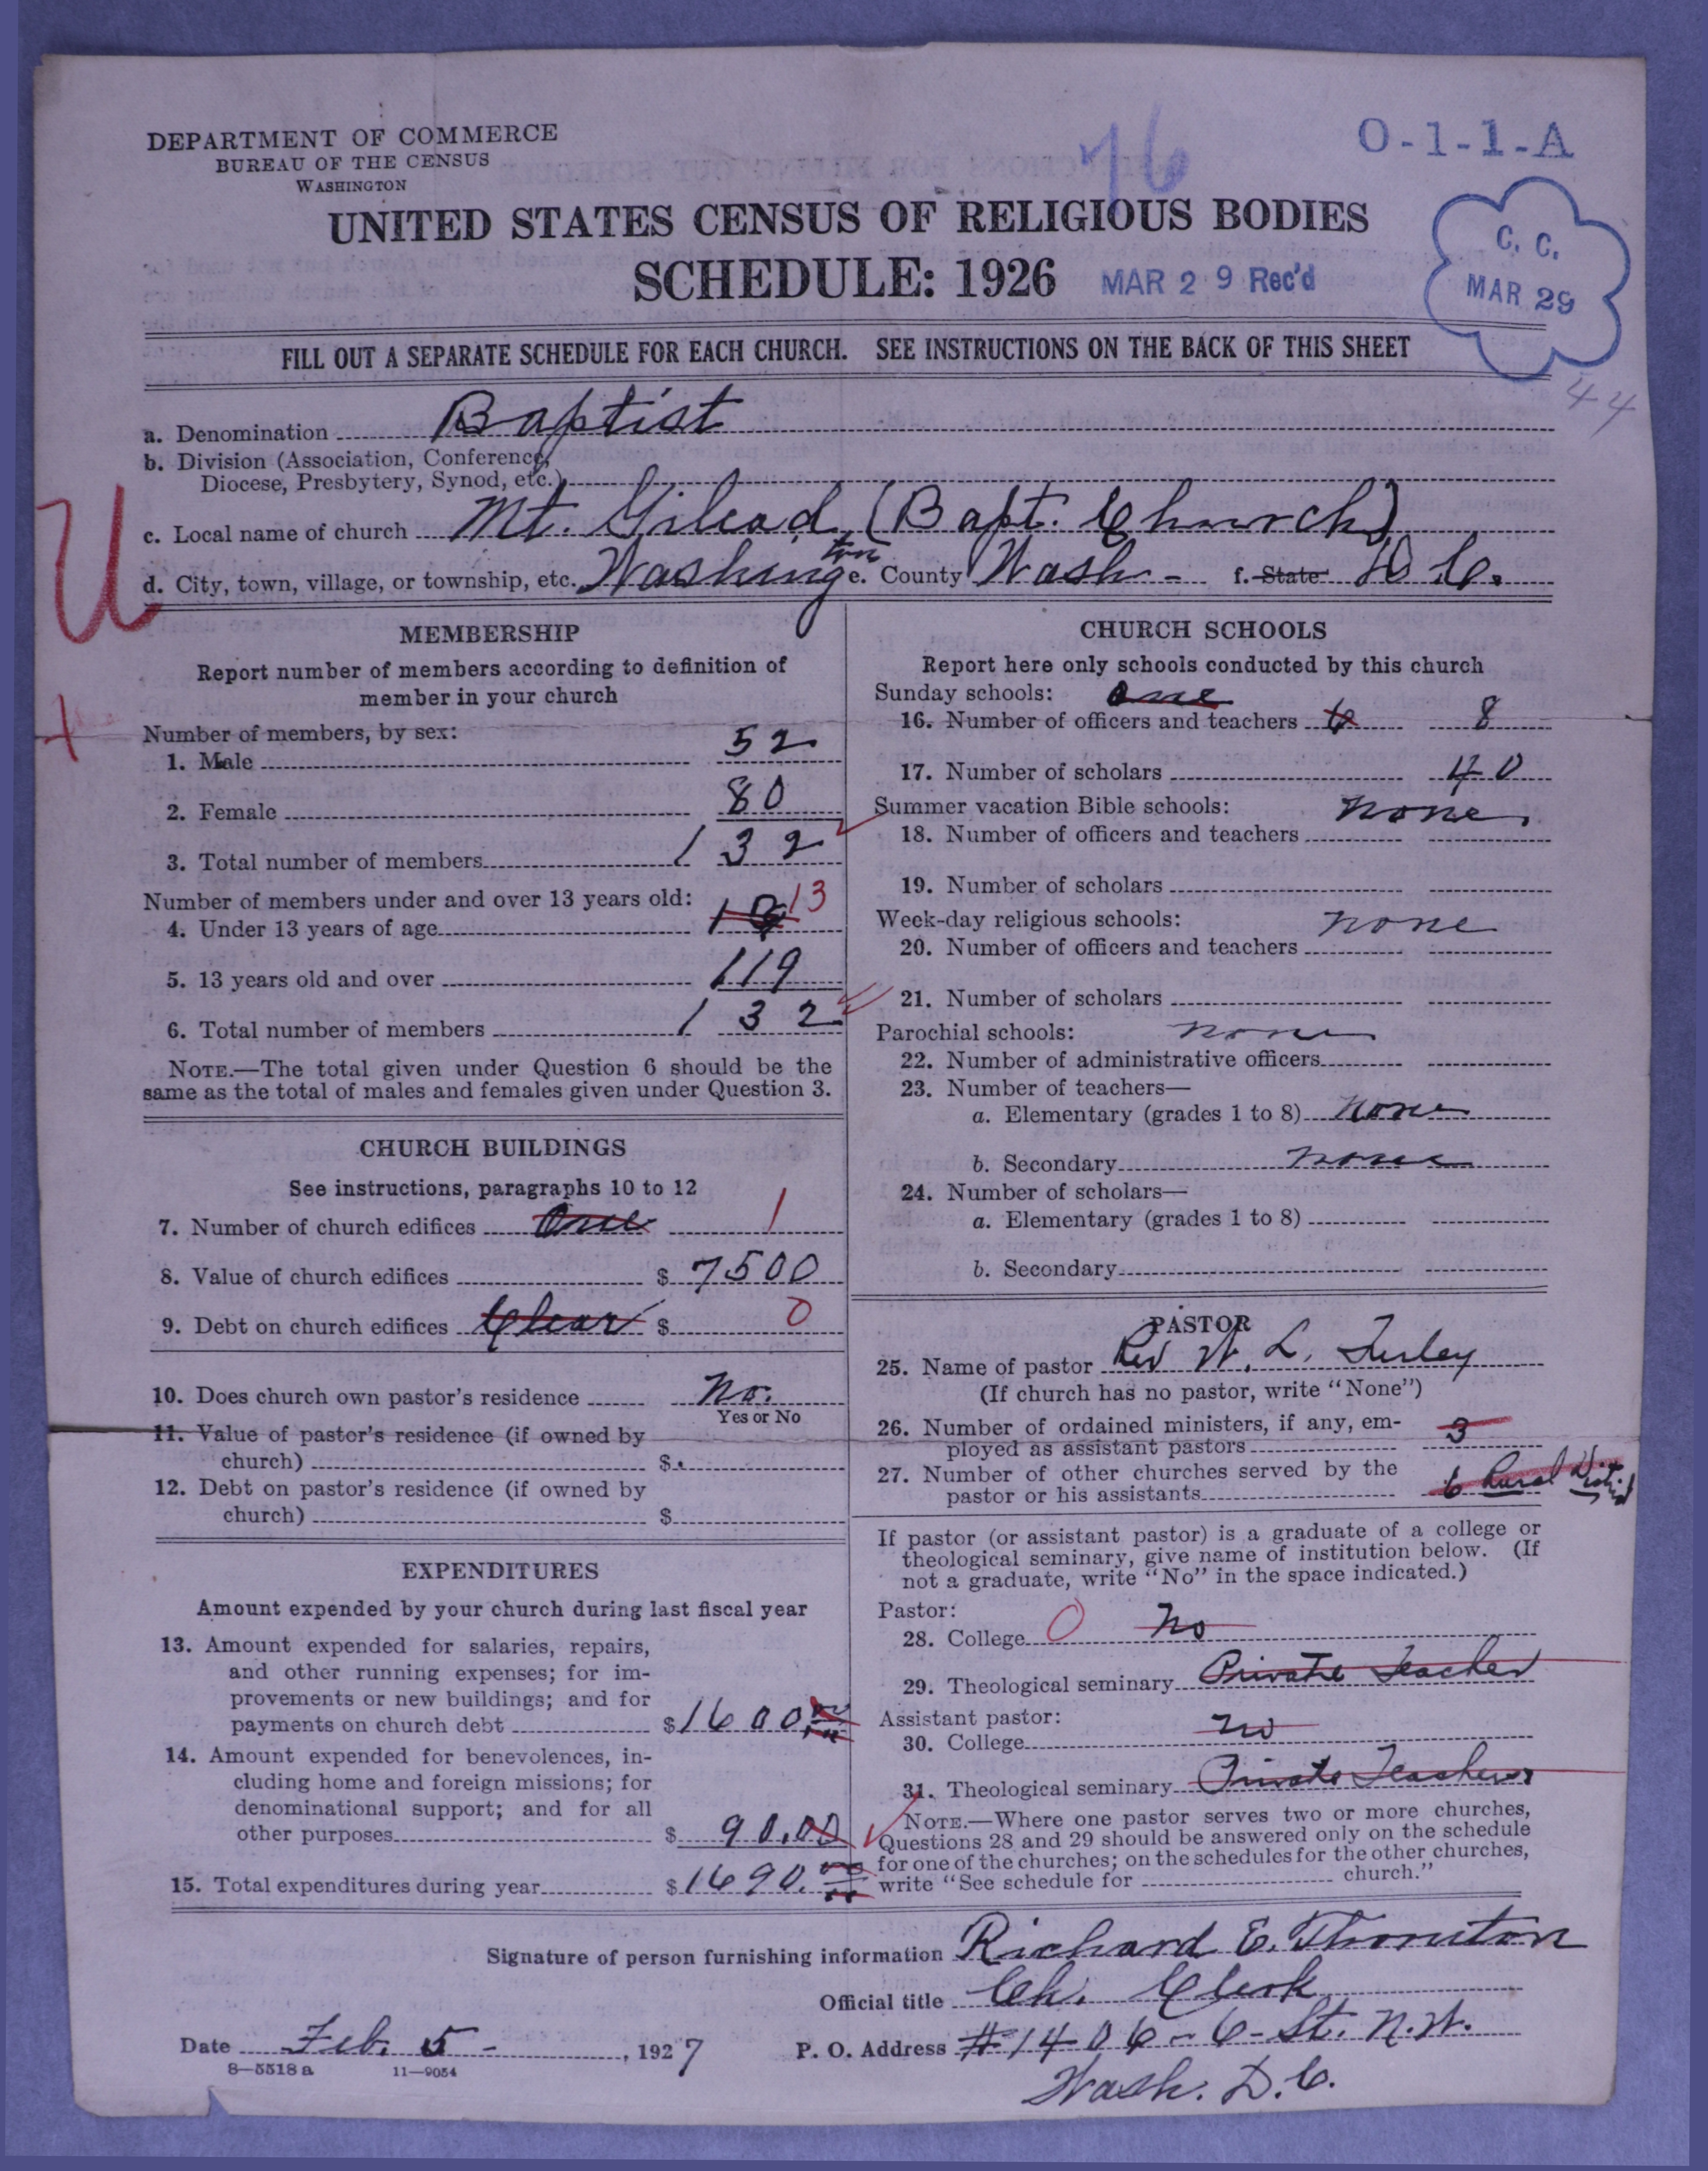 76
O-1-1-A
DEPARTMENT OF COMMERCE
BUREAU OF THE CENSUS
WASHINGTON
UNITED STATES CENSUS OF RELIGIOUS BODIES
SCHEDULE: 1926 MAR 29 Rec'd
C. C.
MAR 29
FILL OUT A SEPARATE SCHEDULE FOR EACH CHURCH. SEE INSTRUCTIONS ON THE BACK OF THIS SHEET
44
a. Denomination Baptist
b. Division (Association, Conference,
Diocese, Presbytery, Synod, etc.)
U
c. Local name of church Mt. Gilead (Bapt. Church)
d. City, town, village, or township, etc. Washington e. County Wash- f. State D.C.
MEMBERSHIP
Report number of members according to definition of
member in your church
Number of members, by sex:
1. Male 52
2. Female 80
3. Total number of members 132
Number of members under and over 13 years old:
4. Under 13 years of age 13
5. 13 years old and over 119
6. Total number of members 132
NOTE.—The total given under Question 6 should be the
same as the total of males and females given under Question 3.
CHURCH BUILDINGS
See instructions, paragraphs 10 to 12
7. Number of church edifices One 1
8. Value of church edifices $ 7500
9. Debt on church edifices Clear $ 0
10. Does church own pastor's residence No.
Yes or No
11. Value of pastor's residence (if owned by
church) $
12. Debt on pastor's residence (if owned by
church) $
EXPENDITURES
Amount expended by your church during last fiscal year
13. Amount expended for salaries, repairs,
and other running expenses; for im-
provements or new buildings; and for
payments on church debt $1600.
14. Amount expended for benevolences, in-
cluding home and foreign missions; for
denominational support; and for all
other purposes $ 90.00
15. Total expenditures during year $1690.
CHURCH SCHOOLS
Report here only schools conducted by this church
Sunday schools: One
16. Number of officers and teachers 6 8
17. Number of scholars 40
Summer vacation Bible schools: None.
18. Number of officers and teachers
19. Number of scholars
Week-day religious schools: None
20. Number of officers and teachers
21. Number of scholars
Parochial schools: None
22. Number of administrative officers
23. Number of teachers—
a. Elementary (grades 1 to 8) None
b. Secondary None
24. Number of scholars—
a. Elementary (grades 1 to 8)
b. Secondary
PASTOR
25. Name of pastor Rev W. L. Turley
(If church has no pastor, write "None")
26. Number of ordained ministers, if any, em-
ployed as assistant pastors 3
27. Number of other churches served by the
pastor or his assistants 6 Rural District
If pastor (or assistant pastor) is a graduate of a college or
theological seminary, give name of institution below. (If
not a graduate, write "No" in the space indicated.)
Pastor:
28. College 0 No
29. Theological seminary Private Teacher
Assistant pastor:
30. College No
31. Theological seminary Private Teachers
NOTE.—Where one pastor serves two or more churches,
Questions 28 and 29 should be answered only on the schedule
for one of the churches; on the schedules for the other churches,
write "See schedule for church."
Signature of person furnishing information Richard E. Thornton
Official title Ch. Clerk
Date Feb. 5 - , 1927
P. O. Address #1406-6-St. N.W.
Wash. D.C.
8—5518 a 11—9054